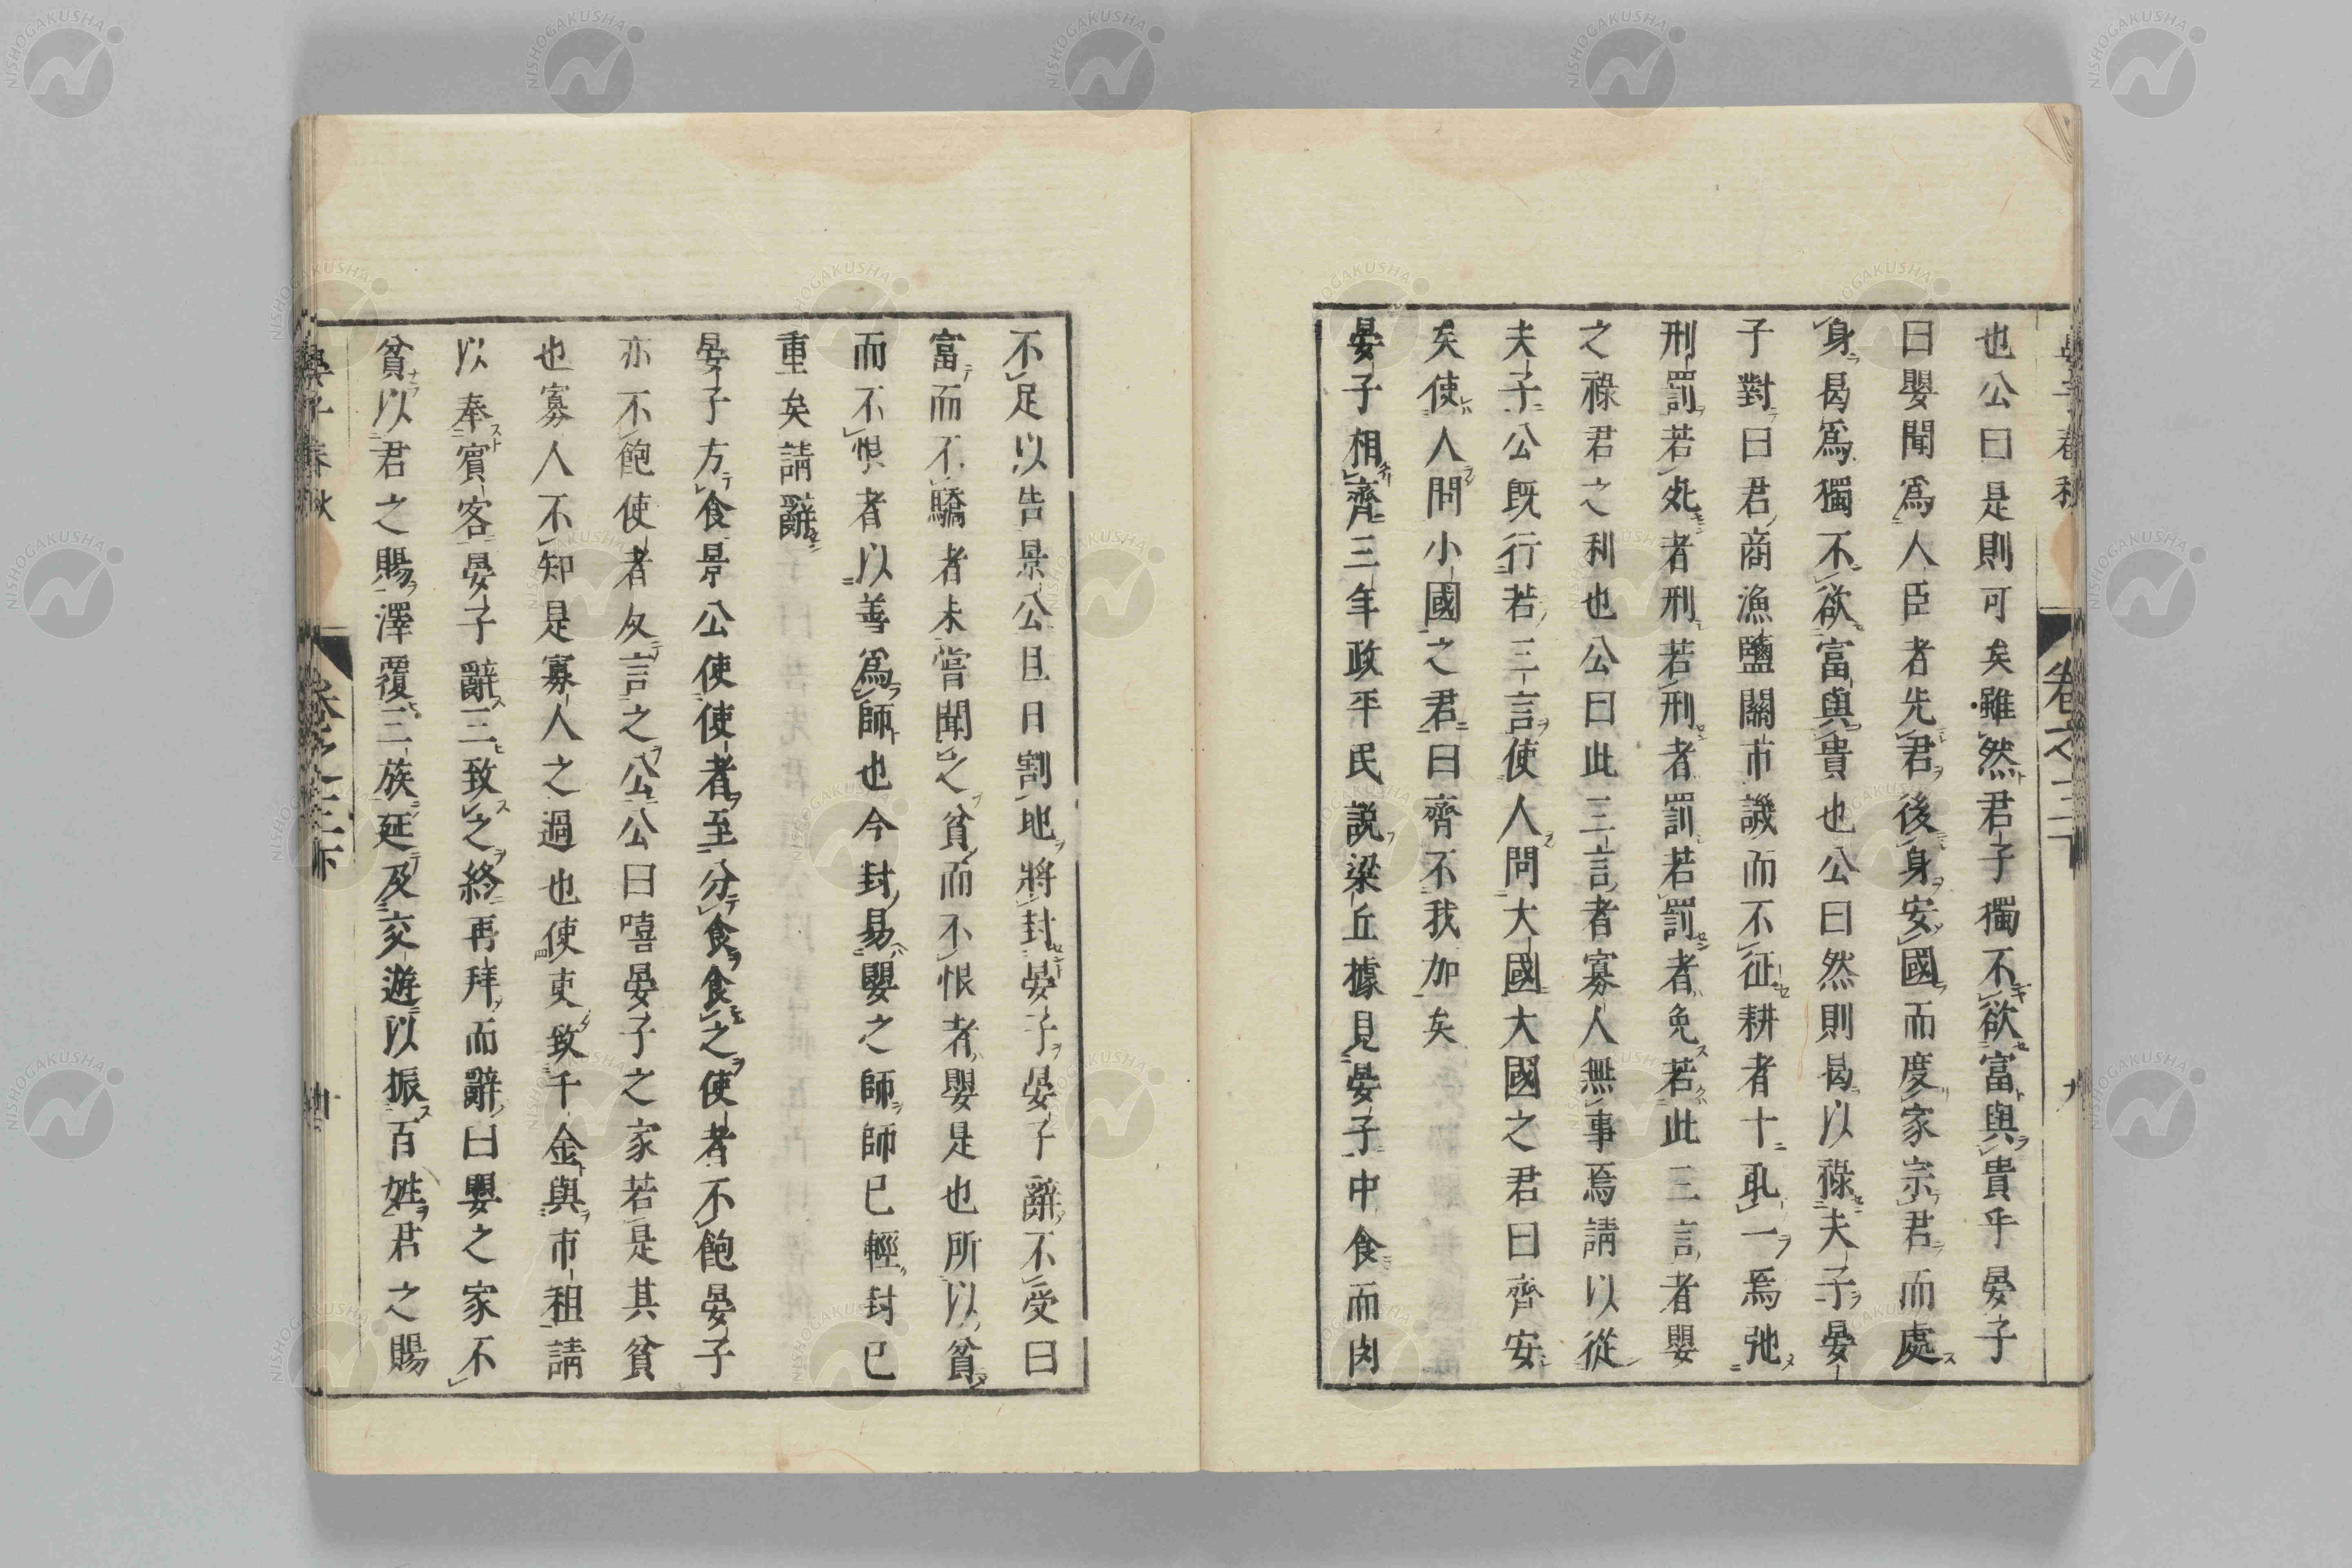 也公曰是則可矣雖然君子獨不欲富與貴乎晏子
曰嬰聞爲人臣者先君後身安國而度家宗君而處
身曷爲獨不欲富與貴也公曰然則曷以祿夫子晏
子對曰君商漁鹽關市譏而不征耕者十取一焉弛
刑罰若死者刑若刑者罰若罰者免若此三言者嬰
之祿君之利也公曰此三言者寡人無事焉請以從
夫子公既行若三言使人問大國大國之君曰齊安
矣使人問小國之君曰齊不我加矣
晏子相齊三年政平民説梁丘據見晏子中食而肉
不足以告景公旦日割地將封晏子晏子辭不受曰
富而不驕者未嘗聞之貧而不恨者嬰是也所以貧
而不恨者以善爲師也今封易嬰之師師已輕封已
重矣請辭
晏子方食景公使使者至分食食之使者不飽晏子
亦不飽使者反言之公公曰嘻晏子之家若是其貧
也寡人不知是寡人之過也使吏致千金與市租請
以奉賓客晏子辭三致之終再拜而辭曰嬰之家不
貧以君之賜澤覆三族延及交遊以振百姓君之賜
晏子春秋
卷之三下
NISHOGAKUSHA